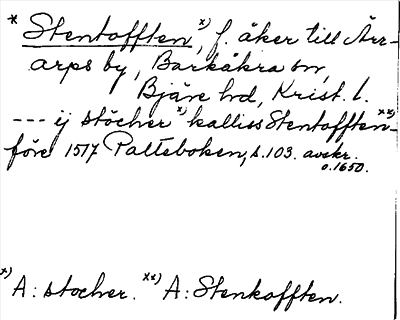 * Stentofften x), f. åker till Ärr-
arps by, Barkåkra sn,
Bjäre hd, Krist. l.
--- ij stöcher x) kalliss Stentofften xx)-
före 1517 Palteboken, s. 103. avskr.
o. 1650.
x) A: stocher. xx) A: Stenkofften.